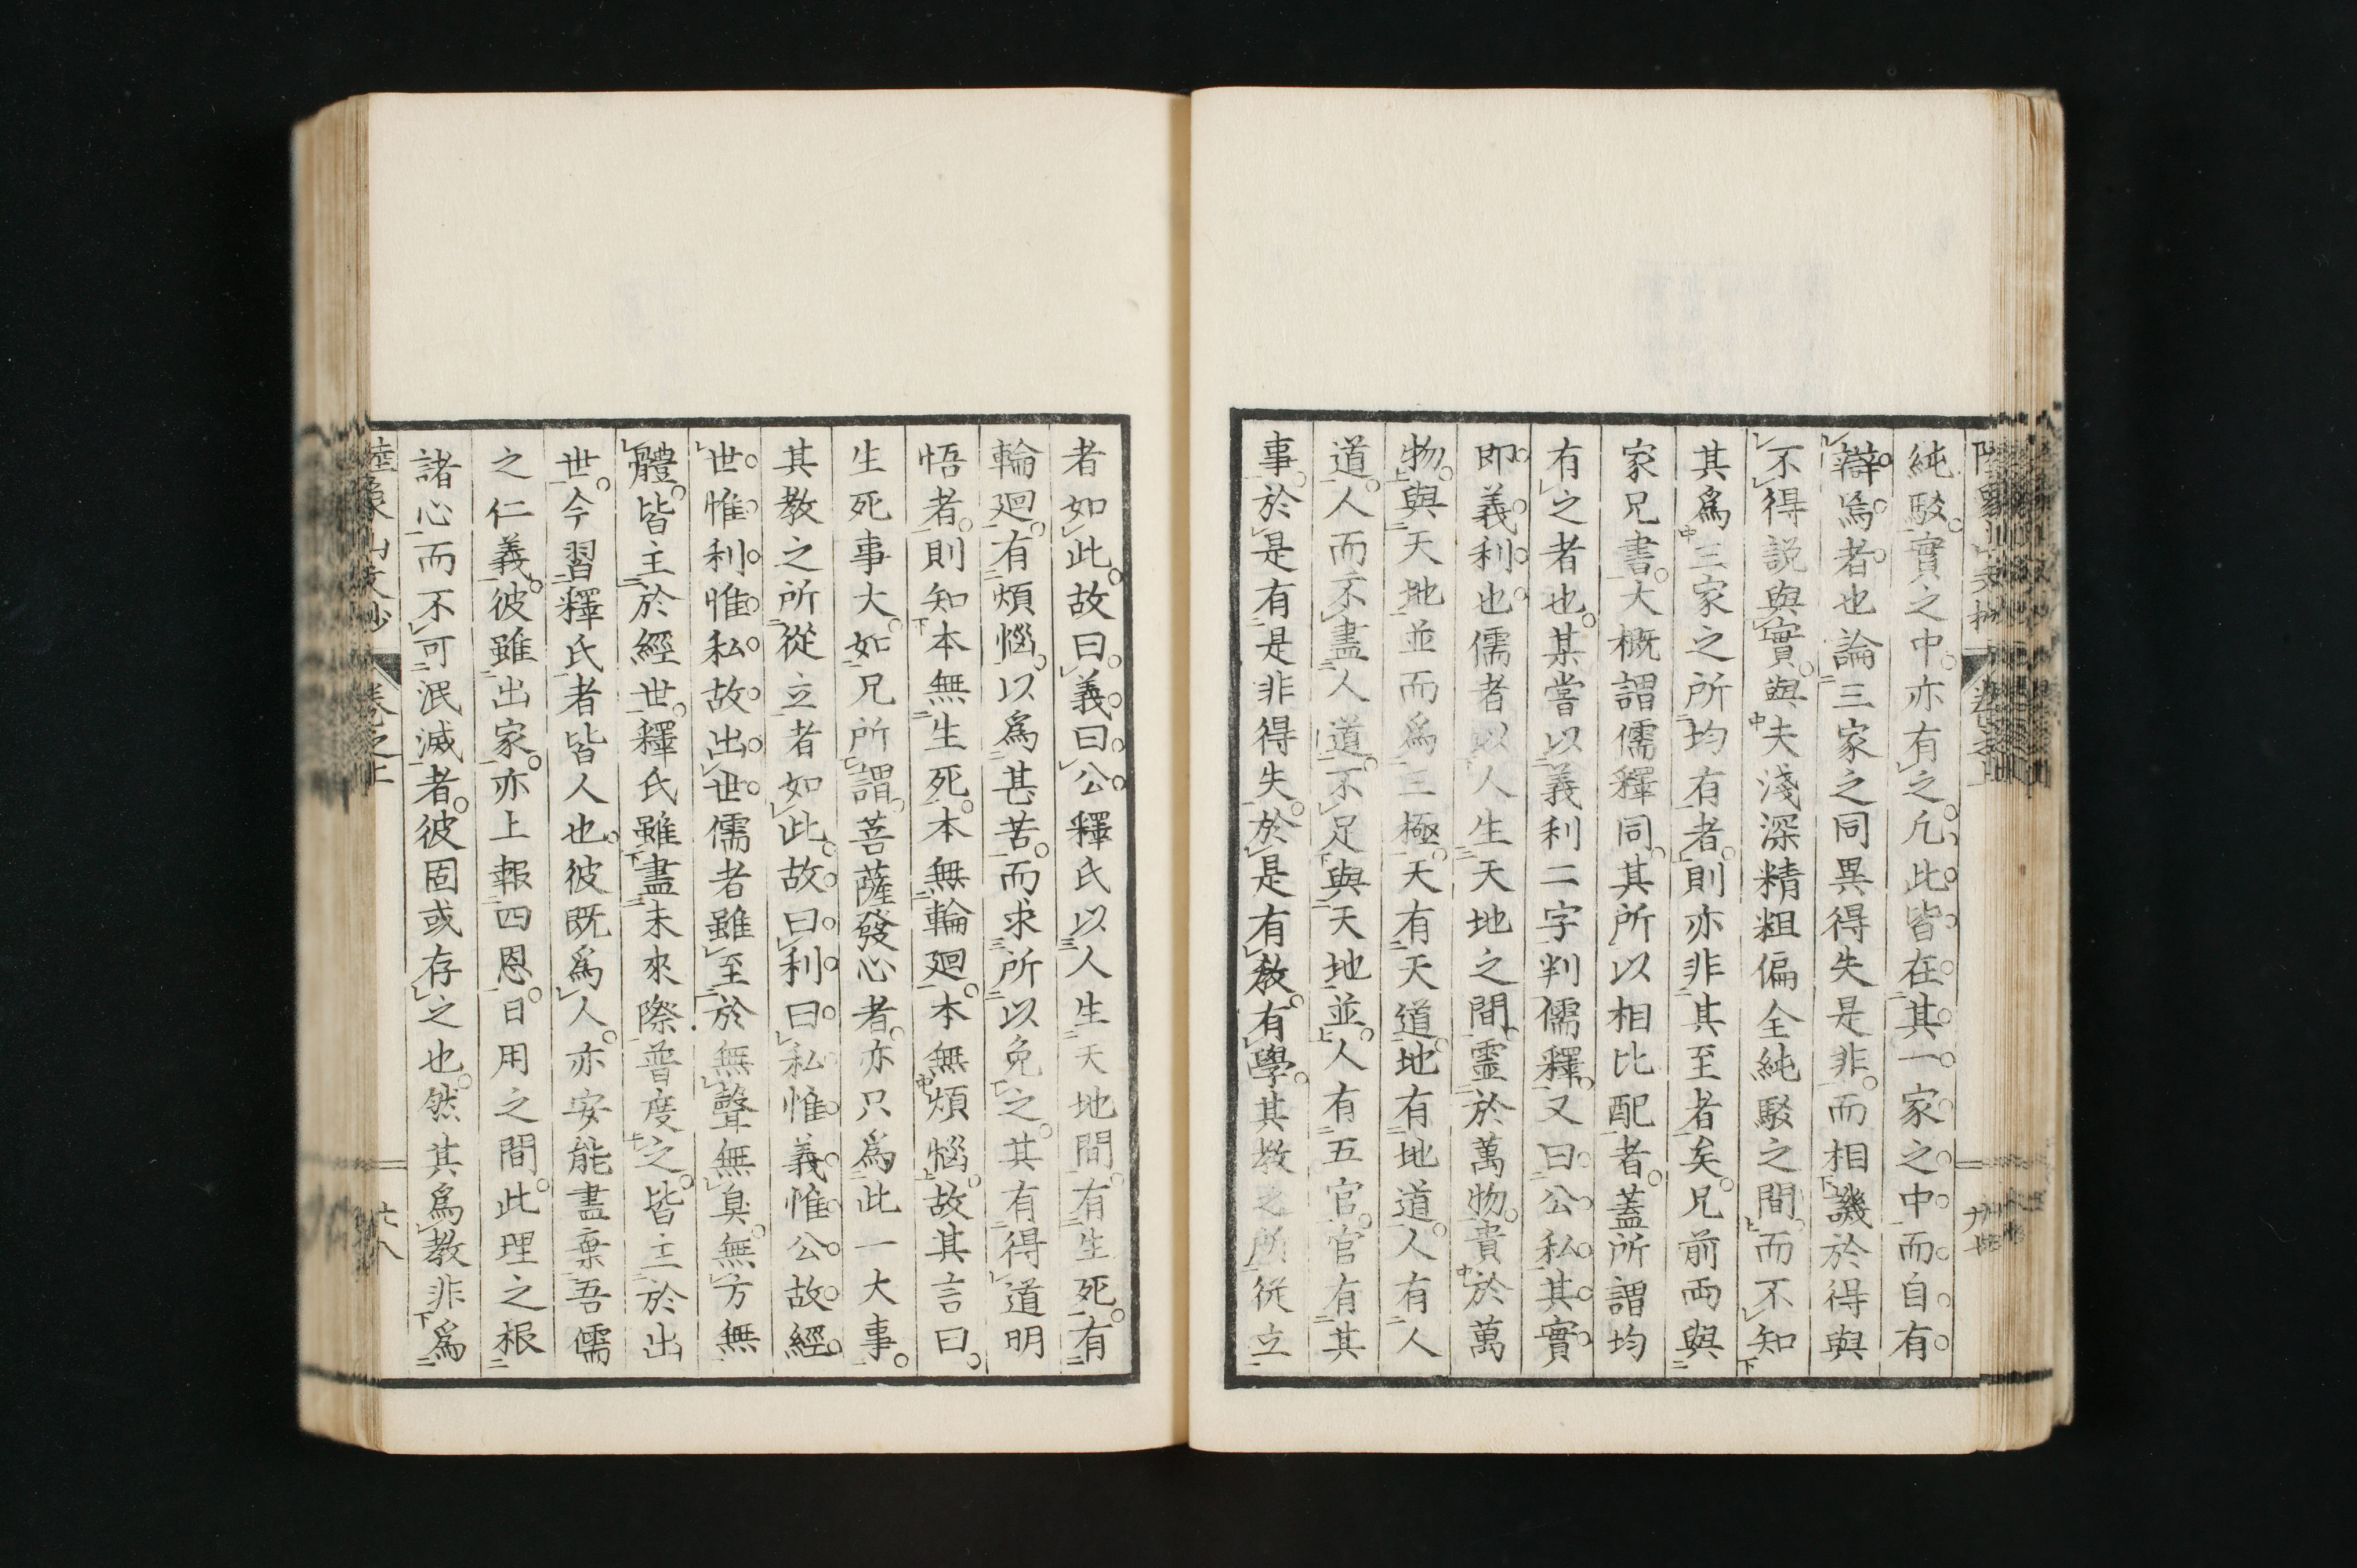 純駁實之中亦有之凡此皆在其一家之中而自有
辯焉者也論三家之同異得失是非而相譏於得與
不得説與實與夫淺深精粗偏全純駁之間而不知
其爲三家之所均有者則亦非其至者矣兄前兩與
家兄書大概謂儒釋同其所以相比配者蓋所謂均
有之者也某嘗以義利二字判儒釋又曰公私其實
即義利也儒者以人生天地之間靈於萬物貴於萬
物與天地並而爲三極天有天道地有地道人有人
道人而不盡人道不足與天地並人有五官官有其
事於是有是非得失於是有教有學其教之所從立
者如此故曰義曰公釋氏以人生天地間有生死有
輪廻有煩惱以爲甚苦而求所以免之其有得道明
悟者則知本無生死本無輪廻本無煩惱故其言曰
生死事大如兄所謂菩薩發心者亦只爲此一大事
其教之所從立者如此故曰利曰私惟義惟公故經
世惟利惟私故出世儒者雖至於無聲無臭無方無
體皆主於經世釋氏雖盡未來際普度之皆主於出
世今習釋氏者皆人也彼既爲人亦安能盡棄吾儒
之仁義彼雖出家亦上報四恩日用之間此理之根
諸心而不可泯滅者彼固或存之也然其爲教非爲
陸象山文抄 卷之上